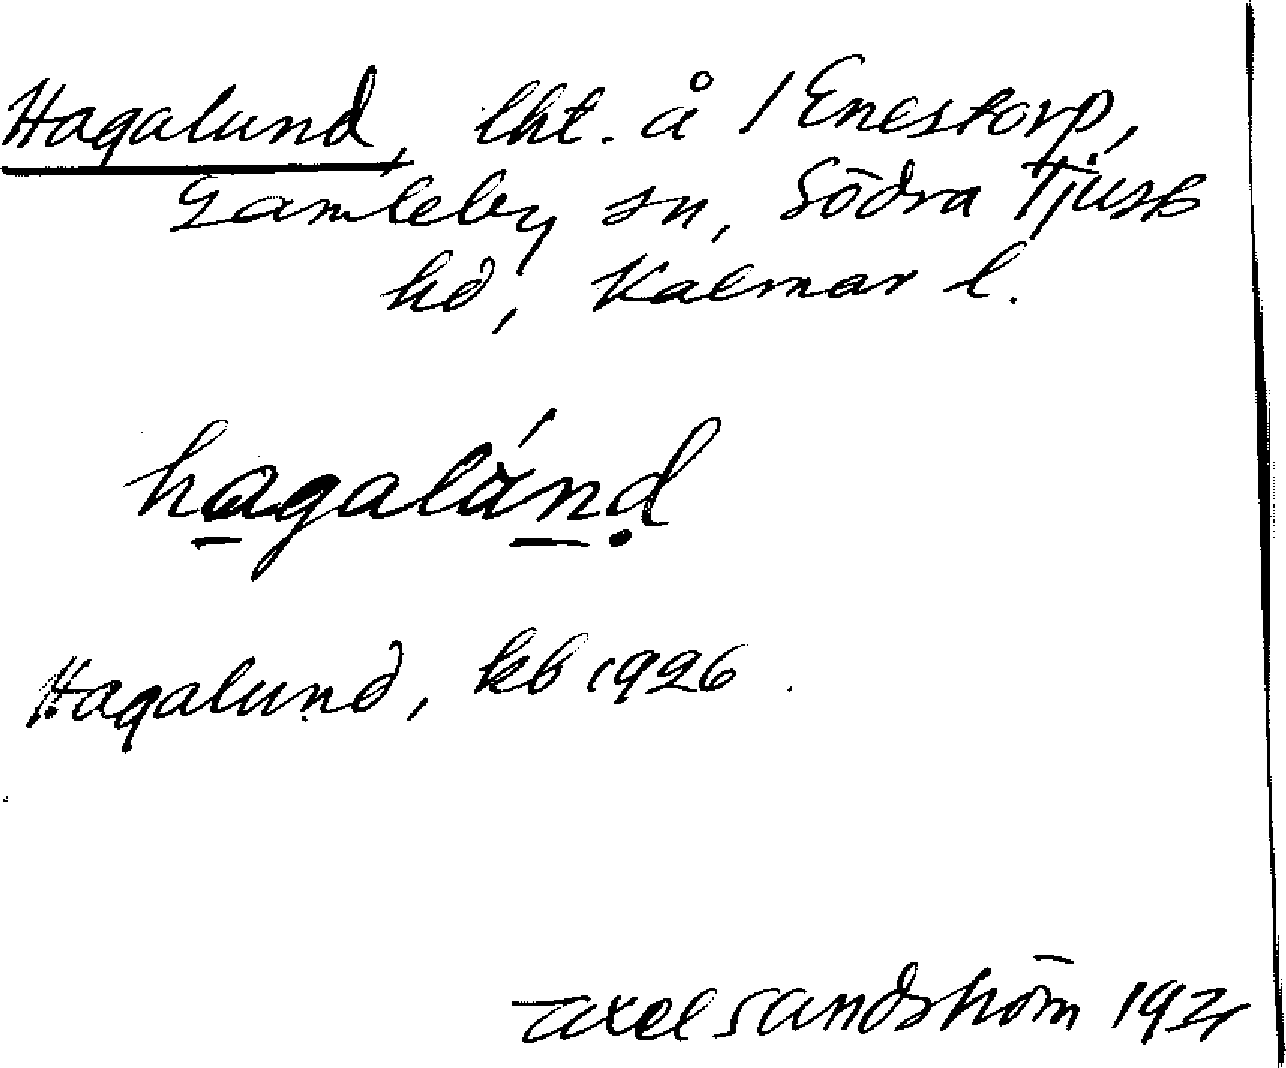 Hagalund, lht. å 1 Enestorp,
Gamleby sn, Södra Tjusts
hd, Kalmar l.
hagalánd
Hagalund, kb 1926.
Axel Sandström